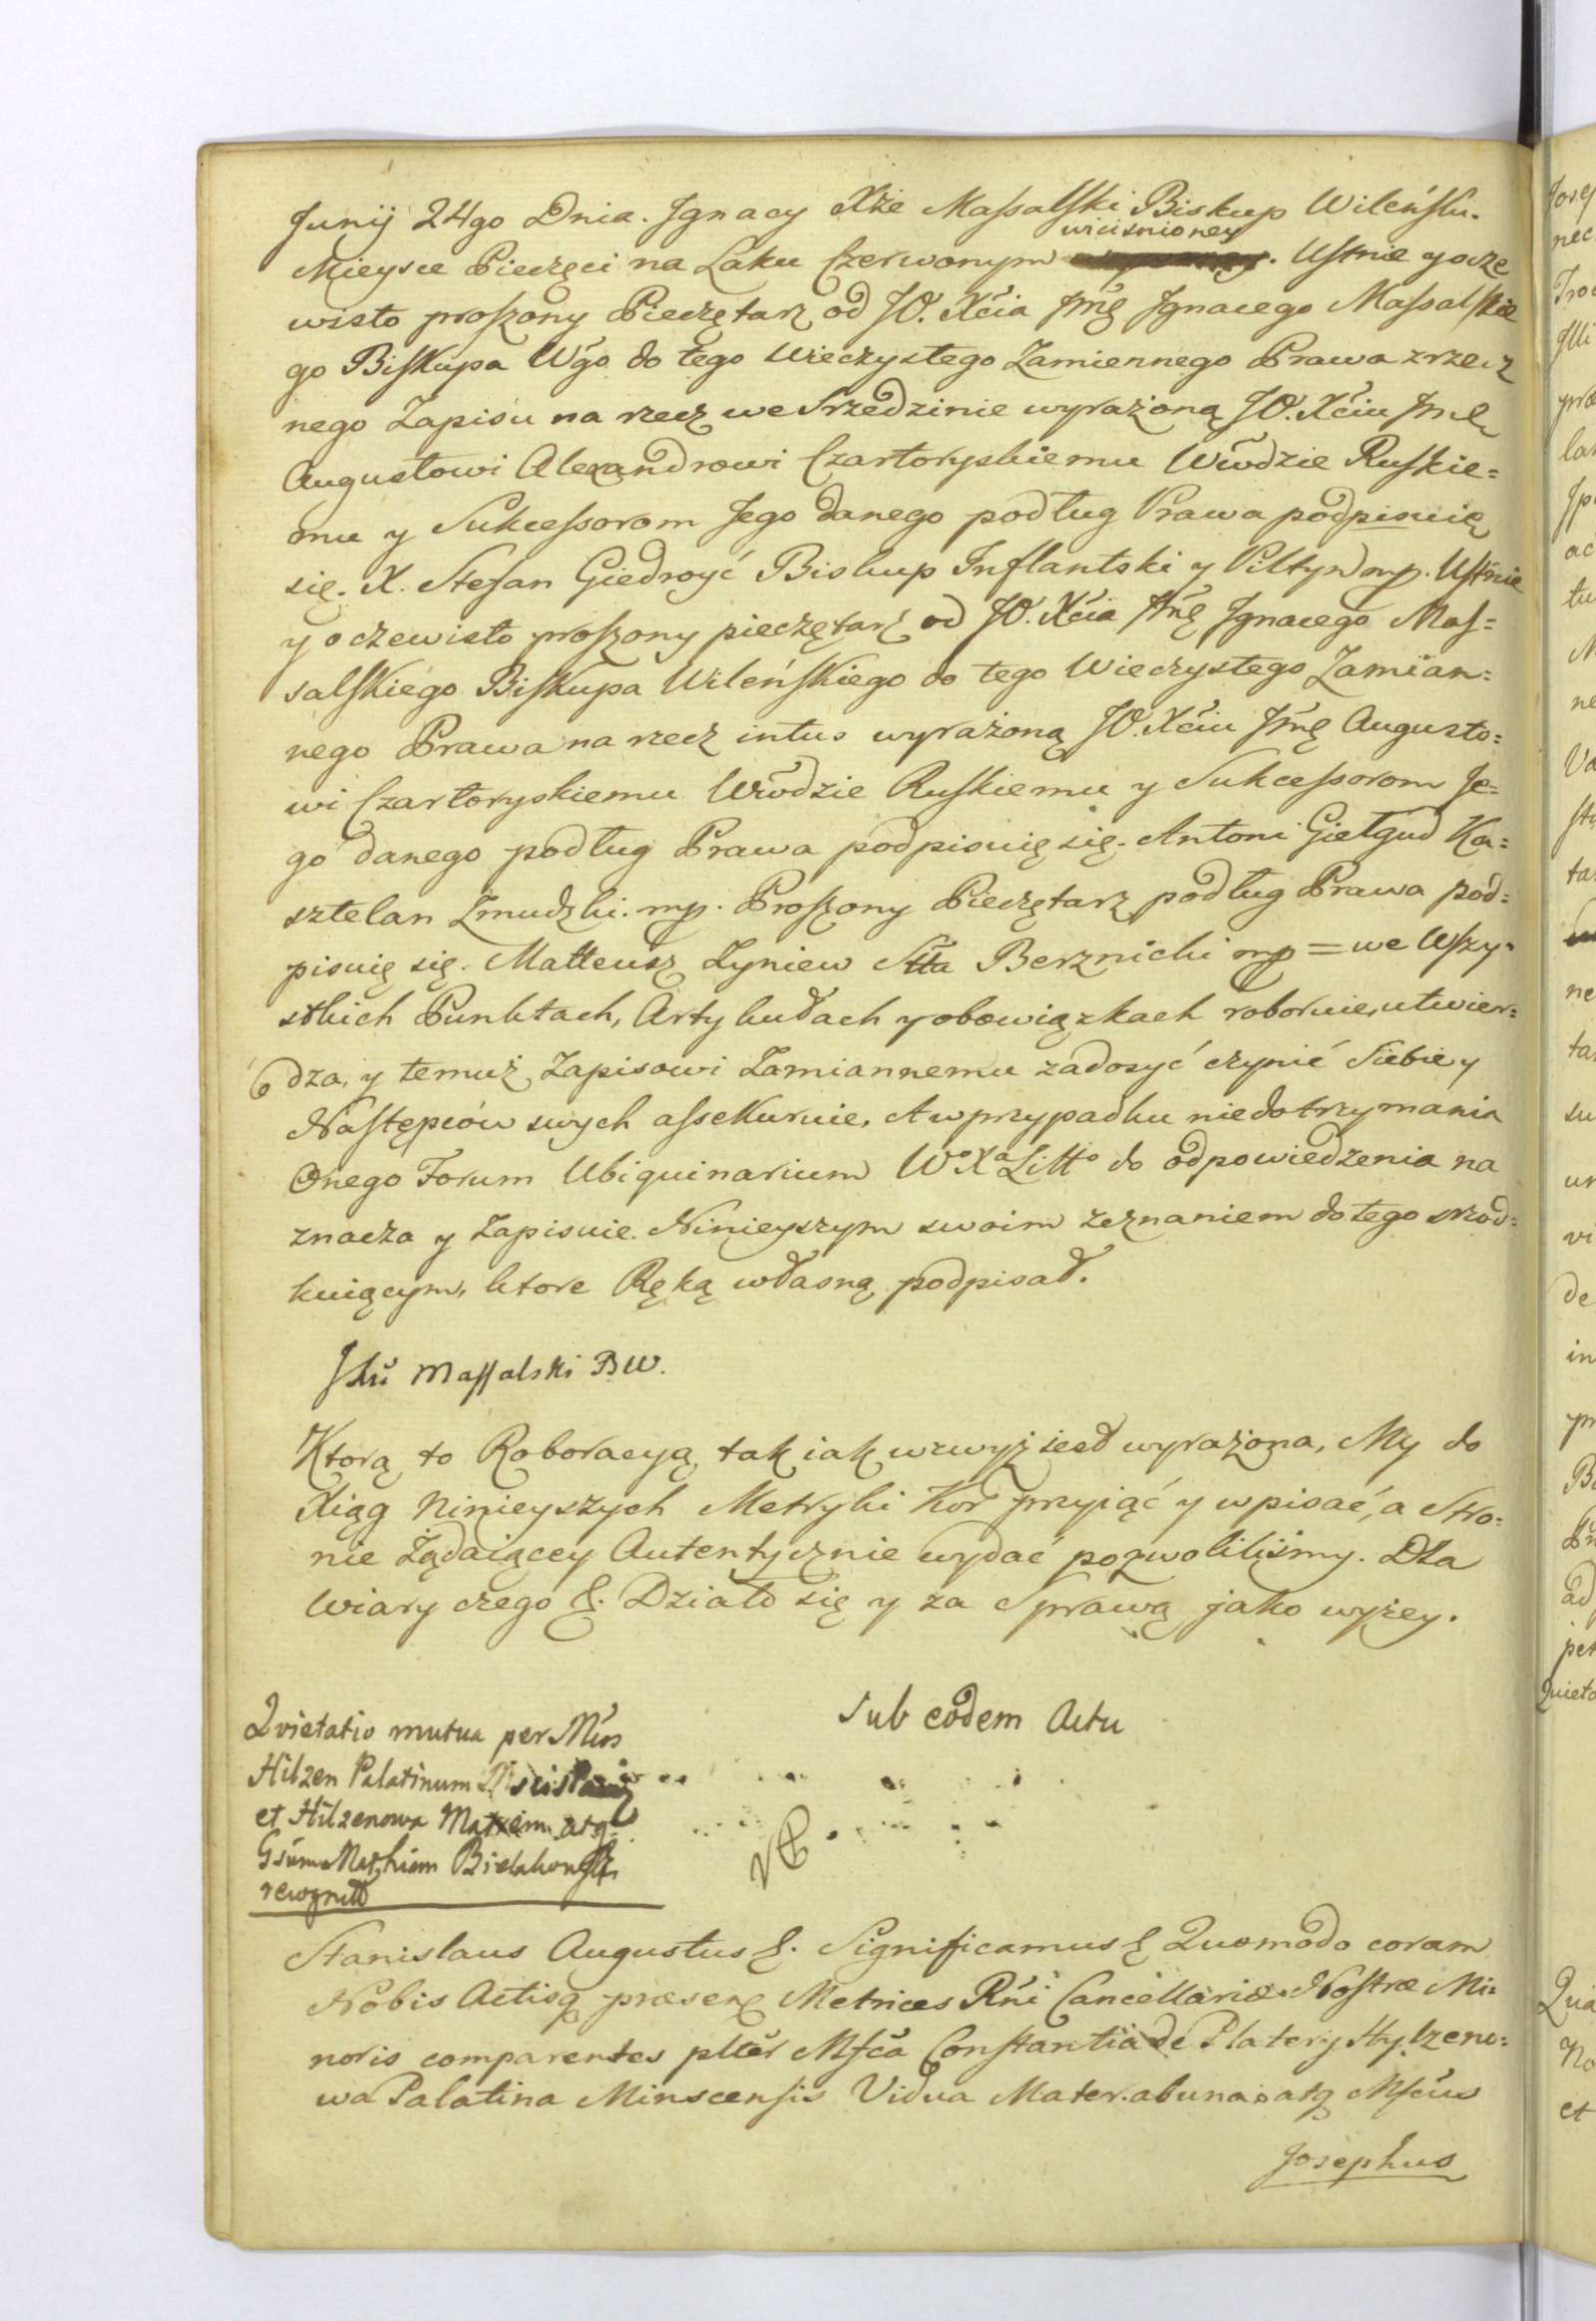 Junij 24go Dnia. Jgnacy Xże Massalski Biskup Wileńsku.
wciśnioney
Mieysce Pieczęci na Laku Czerwonym . Ustnie y ocze
wisto proszony Pieczętarz od JO. Xcia Jmę Jgnacego Massalskie
go Biskupa Wgo do tego Wieczystego Zamiennego Prawa zrzecz
nego Zapisu na rzecz we Srzedzinie wyrażoną JO. Xciu Jmę
Augustowi Alexandrowi Czartoryskiemu Wwdzie Ruskie=
mu y Sukcessorom Jego danego podług Prawa podpisuię
się. X. Stefan Giedroyć Biskup Inflantski y Piltyn mp. Ustnie
y oczewisto proszony pieczętarz od JO. Xcia Jmę Jgnacego Mas=
salskiego Biskupa Wileńskiego do tego Wieczystego Zamian=
nego Prawa na rzecz intus wyrażoną JO. Xciu Jmę Augusto=
wi Czartoryskiemu Wwdzie Ruskiemu y Sukcessorom Je=
go danego podług Prawa podpisuię się. Antoni Giełgud Ka=
sztelan Zmudzki. mp. Proszony Pieczętarz podług Prawa pod=
pisuię się. Matteusz Zyniew Stta Berznicki mp = we Wszy=
stkich Punktach, Artykułach y obowiązkach roboruie, utwier=
dza, y temuż Zapisowi Zamiannemu zadosyć czynić Siebie y
Nastęcow swych assekuruie, A w przypadku niedotrzymania
Onego Forum Ubiquinarium Wo Xa Litto do odpowiedzenia na
znacza y Zapisuie. Ninieyszym swoim zeznaniem do tego srzod=
kuiącym, ktore Ręką własną podpisał.
Massalski BW.
Ktorą to Roboracyą, tak iak wzwyż iest wyrażona, My do
Xiąg Ninieyszych Metryki Kor przyiąć y wpisać, a Stro=
nie Żądaiącey Autentycznie wydać pozwoliliśmy. Dla
Wiary czego &. Działo się y za Sprawą jako wyżey.
Sub eodem Actu
Qvietatio mutua per Mcos
Hilzen Palatinum
et Hilzenowa Matrem atq
Gsum Mathiem
recognit
Stanislaus Augustus &. Significamus & Quomodo coram
Nobis Actisq præsen Metrices Rni Cancellariæ Nostræ Mi=
noris comparentes plter Mfca Constantia de Platery Hylzeno=
wa Palatina Minscensis Vidua Mater ab una atq Mfcus
Josephus